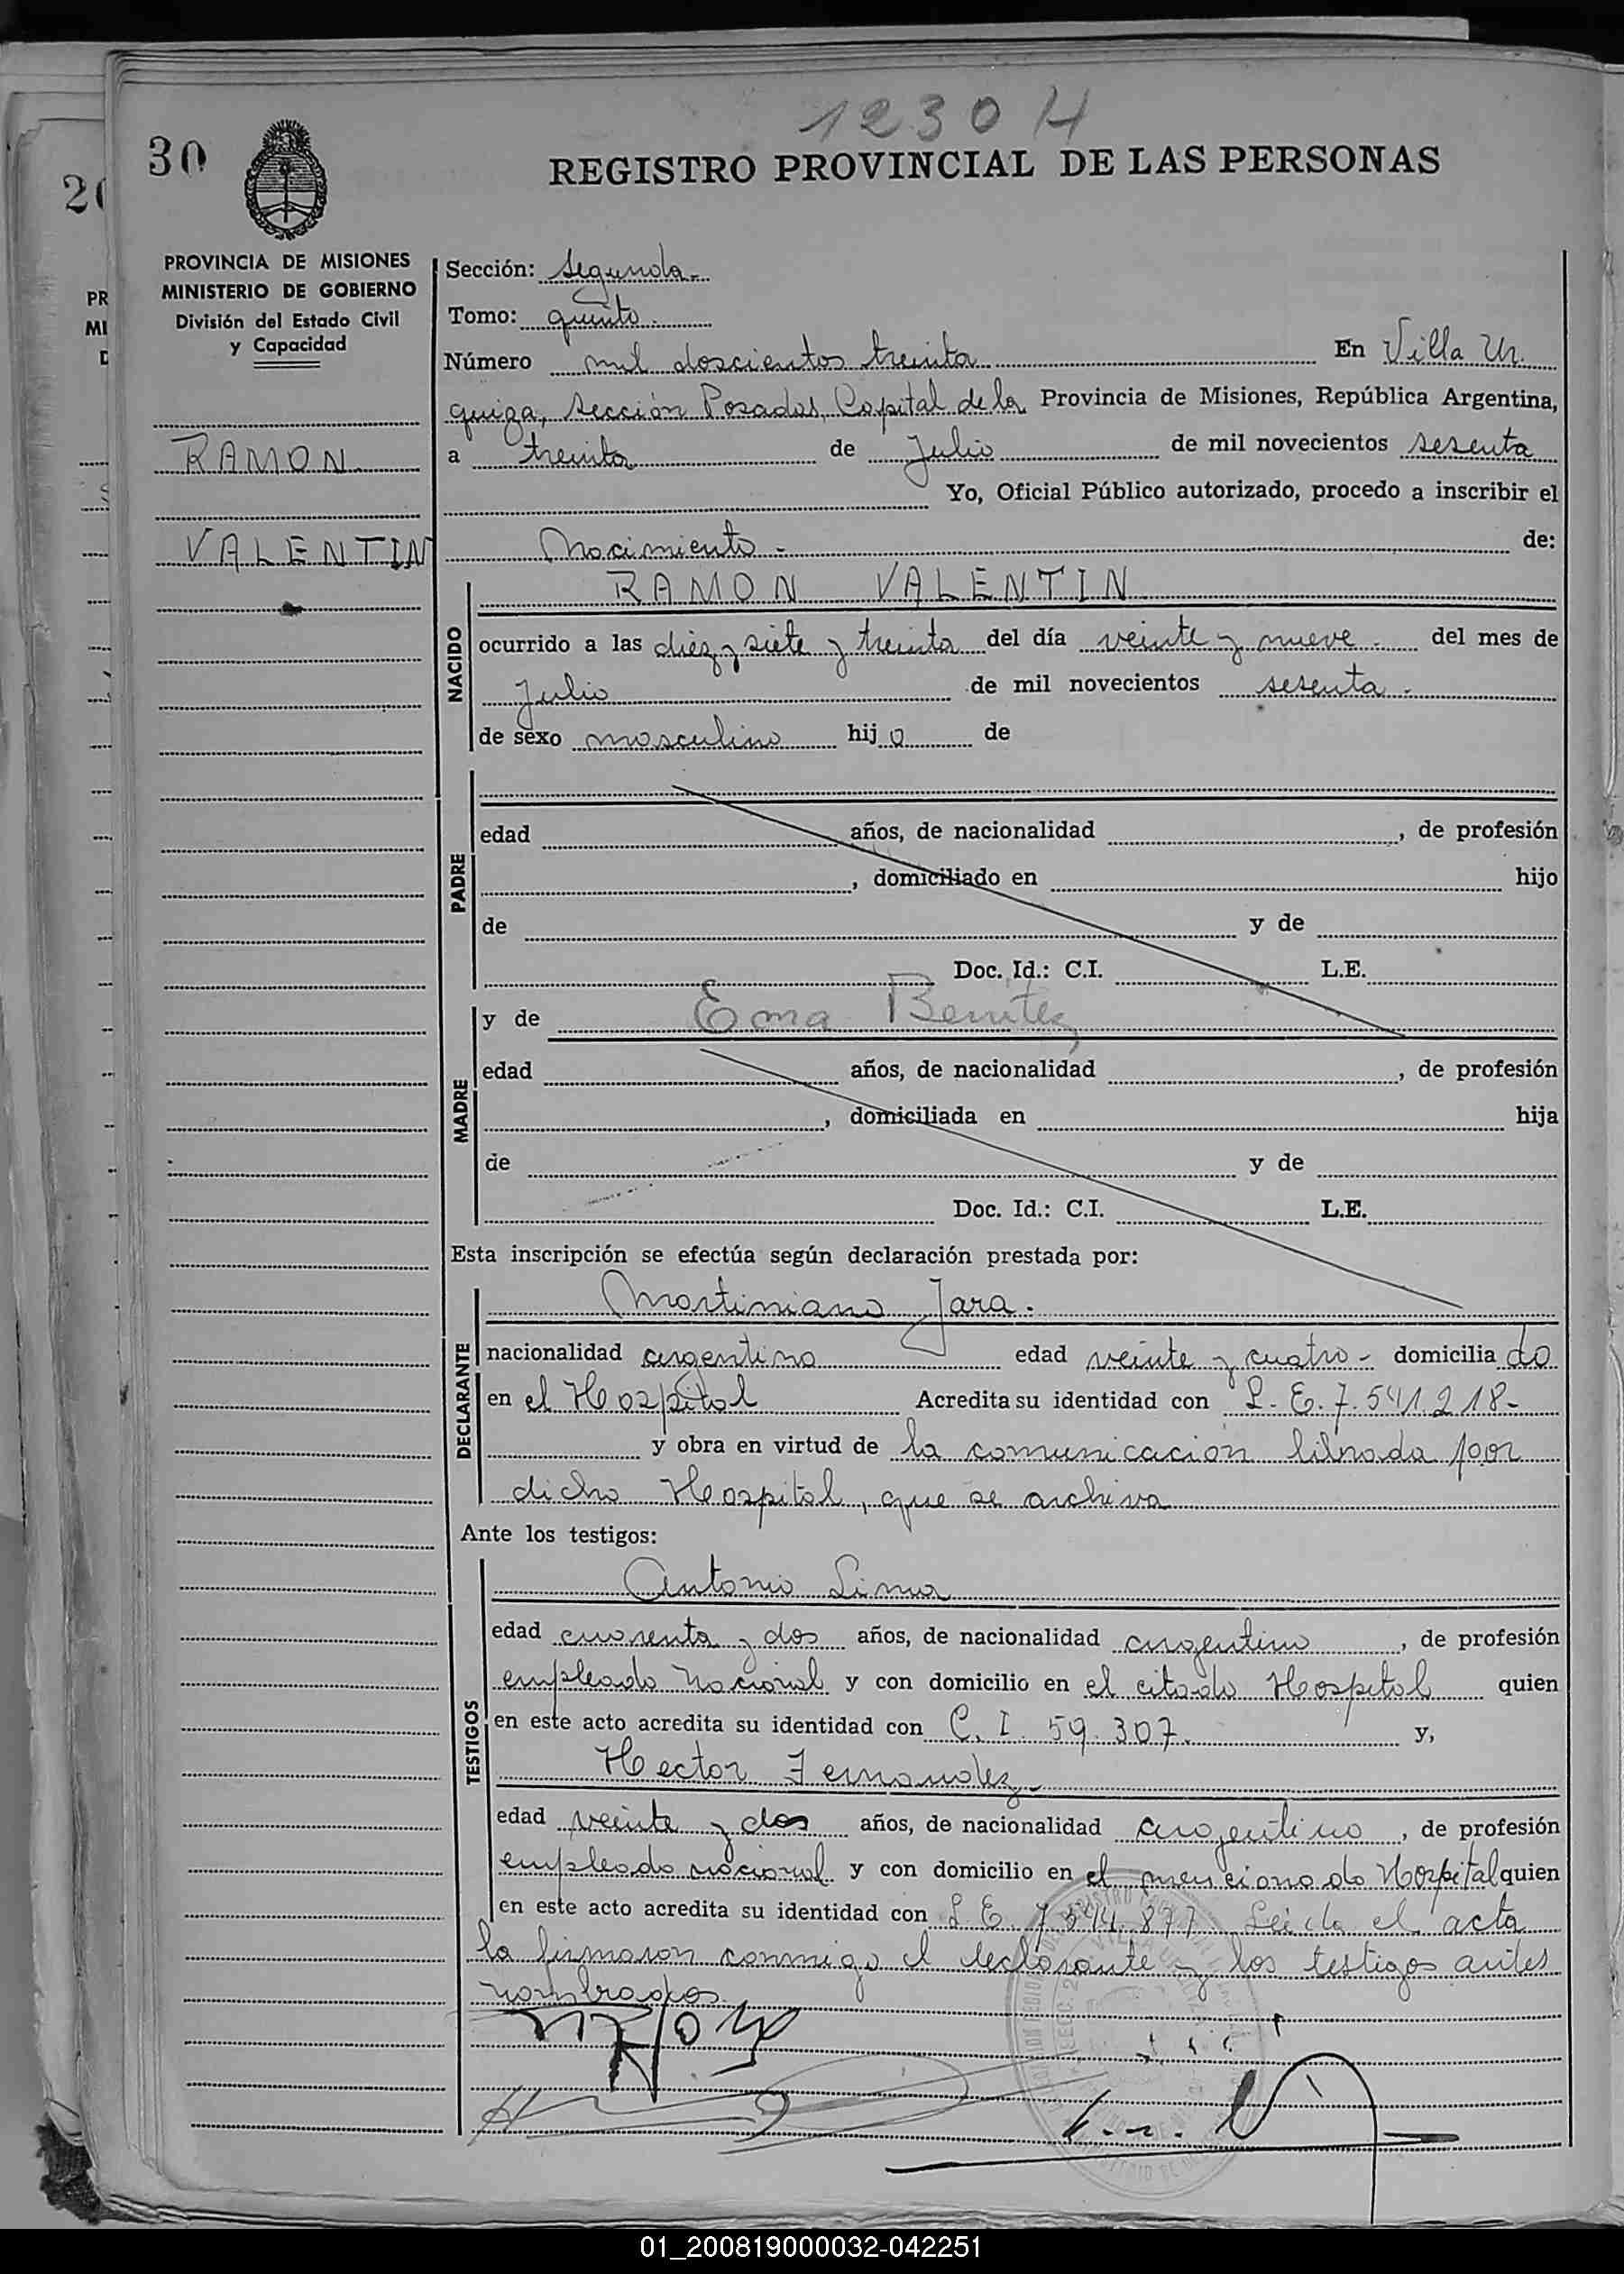 1230 H
30
REGISTRO PROVINCIAL DE LAS PERSONAS
PROVINCIA DE MISIONES
MINISTERIO DE GOBIERNO
División del Estado Civil
y Capacidad
RAMON
VALENTIN
Sección: Segunda.-
Tomo: quinto.
Número mil doscientos treinta En Villa Ur
quiza, Sección Posadas, Capital de la Provincia de Misiones, República Argentina,
a treinta de Julio de mil novecientos sesenta
Yo, Oficial Público autorizado, procedo a inscribir el
Nacimiento - de:
NACIDO
RAMON VALENTIN
ocurrido a las diez y siete y treinta del día veinte y nueve. del mes de
Julio de mil novecientos sesenta.
de sexo masculino hijo de
PADRE
edad años, de nacionalidad , de profesión
, domiciliado en hijo
de y de
Doc. Id.: C.I. L.E.
MADRE
y de Ema Benitez
edad años, de nacionalidad , de profesión
, domiciliada en hija
de y de
Doc. Id.: C.I. L.E.
Esta inscripción se efectúa según declaración prestada por:
DECLARANTE
Martiniano Jara.
nacionalidad argentino edad veinte y cuatro - domiciliado
en el Hospital Acredita su identidad con L. E. 7.541.218-
y obra en virtud de la comunicación librada por
dicho Hospital, que se archiva
Ante los testigos:
TESTIGOS
Antonio Lima
edad cuarenta y dos años, de nacionalidad argentino , de profesión
empleado nacional y con domicilio en el citado Hospital quien
en este acto acredita su identidad con C. I. 59.307. y,
Hector Fernandez
edad veinte y dos años, de nacionalidad argentino , de profesión
empleado nacional y con domicilio en el mencionado Hospital quien
en este acto acredita su identidad con L E 7 544.877 Leida el acta
la firmaron conmigo el declarante y los testigos antes
nombrados.
01_200819000032-042251